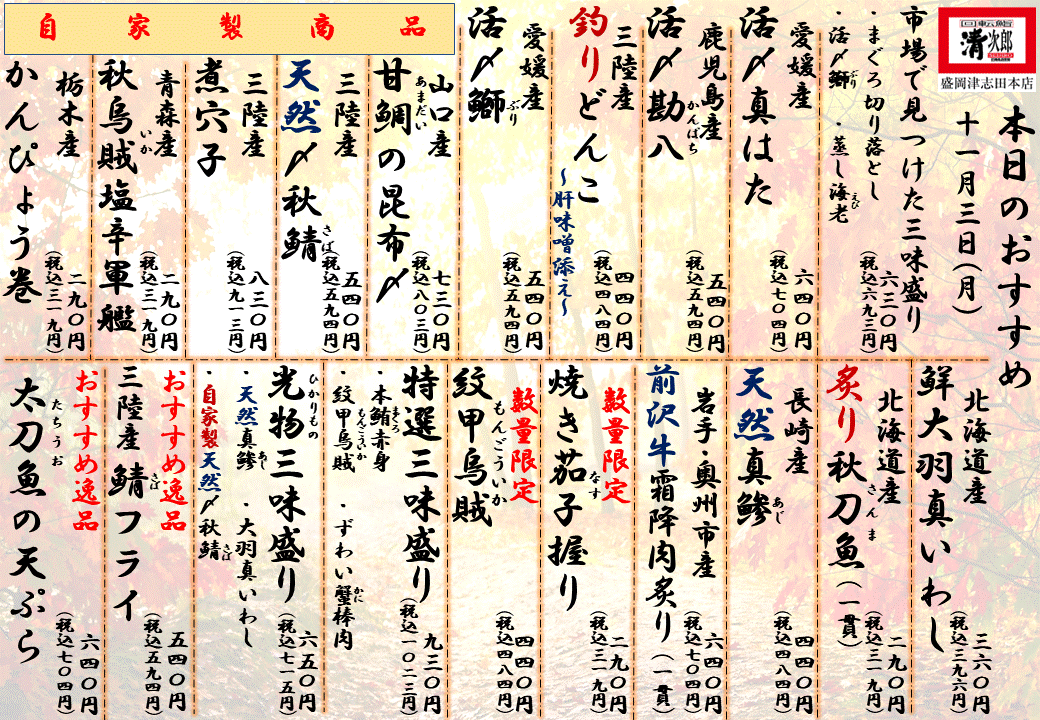 回転鮨
清次郎
盛岡津志田本店
本日のおすすめ
十一月三日(月)
市場で見つけた三味盛り
・まぐろ切り落とし
・活〆鰤 ・蒸し海老
ぶり
えび
六三〇円
(税込六九三円)
愛媛産
活〆真はた
六四〇円
(税込七〇四円)
鹿児島産
活〆勘八
かんぱち
五四〇円
(税込五九四円)
三陸産
釣りどんこ
~肝味噌添え~
四四〇円
(税込四八四円)
愛媛産
活〆鰤
ぶり
五四〇円
(税込五九四円)
自家製商品
山口産
甘鯛の昆布〆
あまだい
七三〇円
(税込八〇三円)
三陸産
天然〆秋鯖
さば
五四〇円
(税込五九四円)
三陸産
煮穴子
八三〇円
(税込九一三円)
青森産
秋烏賊塩辛軍艦
いか
二九〇円
(税込三一九円)
栃木産
かんぴょう巻
二九〇円
(税込三一九円)
北海道産
鮮大羽真いわし
三六〇円
(税込三九六円)
北海道産
炙り秋刀魚(一貫)
さんま
二九〇円
(税込三一九円)
長崎産
天然真鯵
あじ
四四〇円
(税込四八四円)
岩手・奥州市産
前沢牛霜降肉炙り(一貫)
六四〇円
(税込七〇四円)
数量限定
焼き茄子握り
なす
二九〇円
(税込三一九円)
数量限定
紋甲烏賊
もんごういか
四四〇円
(税込四八四円)
特選三味盛り
・本鮪赤身 ・ずわい蟹棒肉
まぐろ
かに
・紋甲烏賊
もんごういか
九三〇円
(税込一〇二三円)
光物三味盛り
ひかりもの
・天然真鯵 ・大羽真いわし
あじ
・自家製天然〆秋鯖
さば
六五〇円
(税込七一五円)
おすすめ逸品
三陸産 鯖フライ
さば
五四〇円
(税込五九四円)
おすすめ逸品
太刀魚の天ぷら
たちうお
六四〇円
(税込七〇四円)